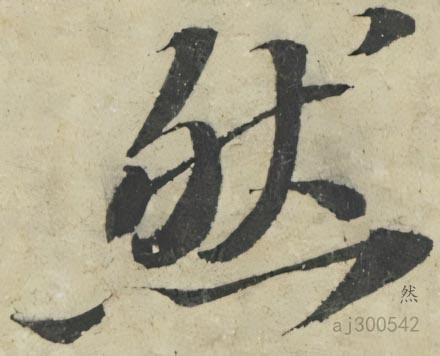 然
然
aj300542